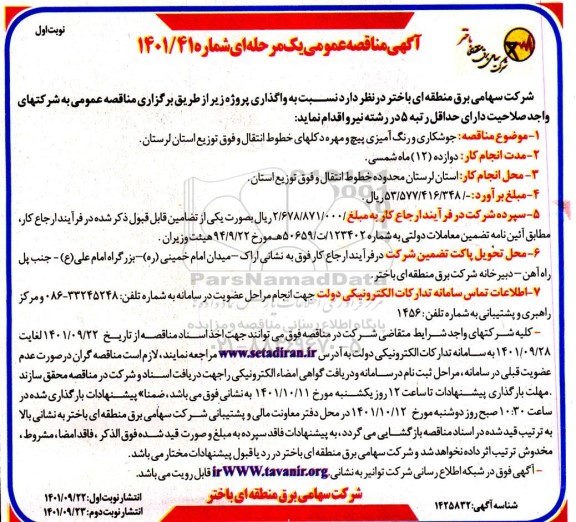 نوبت اول
آگهی مناقصه عمومی یک مرحله‌ای شماره ۱۴۰۱/۴۱
شرکت سهامی برق منطقه ای باختر در نظر دارد نسبت به واگذاری پروژه زیر از طریق برگزاری مناقصه عمومی به شرکتهای
واجد صلاحیت دارای حداقل رتبه ۵ در رشته نیرو اقدام نماید:
۱-موضوع مناقصه: جوشکاری و رنگ آمیزی پیچ و مهره دکلهای خطوط انتقال و فوق توزیع استان لرستان.
۲-مدت انجام کار: دوازده (۱۲) ماه شمسی.
۳- محل انجام کار: استان لرستان محدوده خطوط انتقال و فوق توزیع استان.
۴-مبلغ برآورد: -/۵۳/۵۷۷/۴۱۶/۳۴۸ ریال.
۵- سپرده شرکت در فرآیند ارجاع کار به مبلغ ۲/۶۷۸/۸۷۱/۰۰۰/ ریال بصورت یکی از تضامین قابل قبول ذکر شده در فرآیند ارجاع کار،
مطابق آئین نامه تضمین معاملات دولتی به شماره ۱۲۳۴۰۲/ت/۵۰۶۵۹هـ مورخ ۹۴/۹/۲۲ هیئت وزیران.
۶- محل تحویل پاکت تضمین شرکت در فرآیند ارجاع کار فوق به نشانی اراک - میدان امام خمینی (ره)-بزرگراه امام علی(ع) - جنب پل
راه آهن - دبیرخانه شرکت برق منطقه ای باختر
۷- اطلاعات تماس سامانه تدارکات الکترونیکی دولت جهت انجام مراحل عضویت در سامانه به شماره تلفن: ۳۳۲۴۵۲۴۸-۰۸۶ و مرکز
راهبری و پشتیبانی به شماره تلفن: ۱۴۵۶
- کلیه شرکتهای واجد شرایط متقاضی شرکت در مناقصه فوق می توانند جهت اخذ اسناد مناقصه از تاریخ ۱۴۰۱/۰۹/۲۲ لغایت
۱۴۰۱/۰۹/۲۸ به سامانه تدارکات الکترونیکی دولت به آدرس www.setadiran.ir مراجعه نمایند، لازم است مناقصه گران در صورت عدم
عضویت قبلی در سامانه، مراحل ثبت نام در سامانه و دریافت گواهی امضاء الکترونیکی را جهت دریافت اسناد و شرکت در مناقصه محقق سازند
.مهلت بارگذاری پیشنهادات تا ساعت ۱۲ روز یکشنبه مورخ ۱۴۰۱/۱۰/۱۱ به نشانی فوق می باشد، ضمناً پیشنهادات بارگذاری شده در
ساعت ۱۰:۳۰ صبح روز دوشنبه مورخ ۱۴۰۱/۱۰/۱۲ در محل دفتر معاونت مالی و پشتیبانی شرکت سهامی برق منطقه ای باختر به نشانی بالا
به ترتیب قید شده در اسناد مناقصه بازگشایی می گردد، به پیشنهادات فاقد سپرده به مبلغ و صورت قید شده فوق الذکر، فاقد امضاء، مشروط،
مخدوش ترتیب اثر داده نخواهد شد و شرکت سهامی برق منطقه ای باختر در رد یا قبول پیشنهادات مختار می باشد.
- آگهی فوق در شبکه اطلاع رسانی شرکت توانیر به نشانی: WWW.tavanir.org.ir قابل رویت می باشد.
شرکت سهامی برق منطقه‌ای باختر
شناسه آگهی: ۱۴۲۵۸۳۲
انتشار نوبت اول: ۱۴۰۱/۰۹/۲۲
انتشار نوبت دوم: ۱۴۰۱/۰۹/۲۳
ParsNamadData
پایگاه اطلاع رسانی مناقصه و مزایده